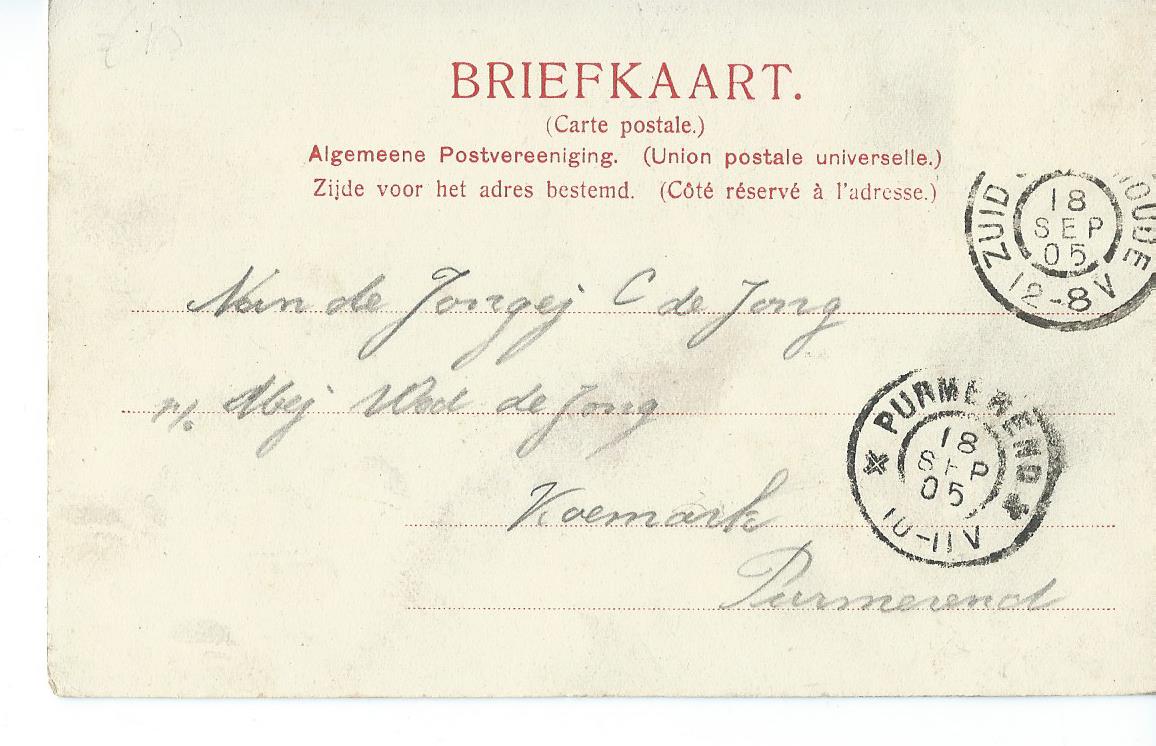 BRIEFKAART.
(Carte postale.)
Algemeene Postvereeniging. (Union postale universelle.)
Zijde voor het adres bestemd. (Côté réservé à l'adresse.)
ZUID OUDE
18
SEP
05
12-8V
de Jongej C de Jong
Mej Wed de Jong
Koemark
Purmerend
PURMEREND
18
SEP
05
10-11V